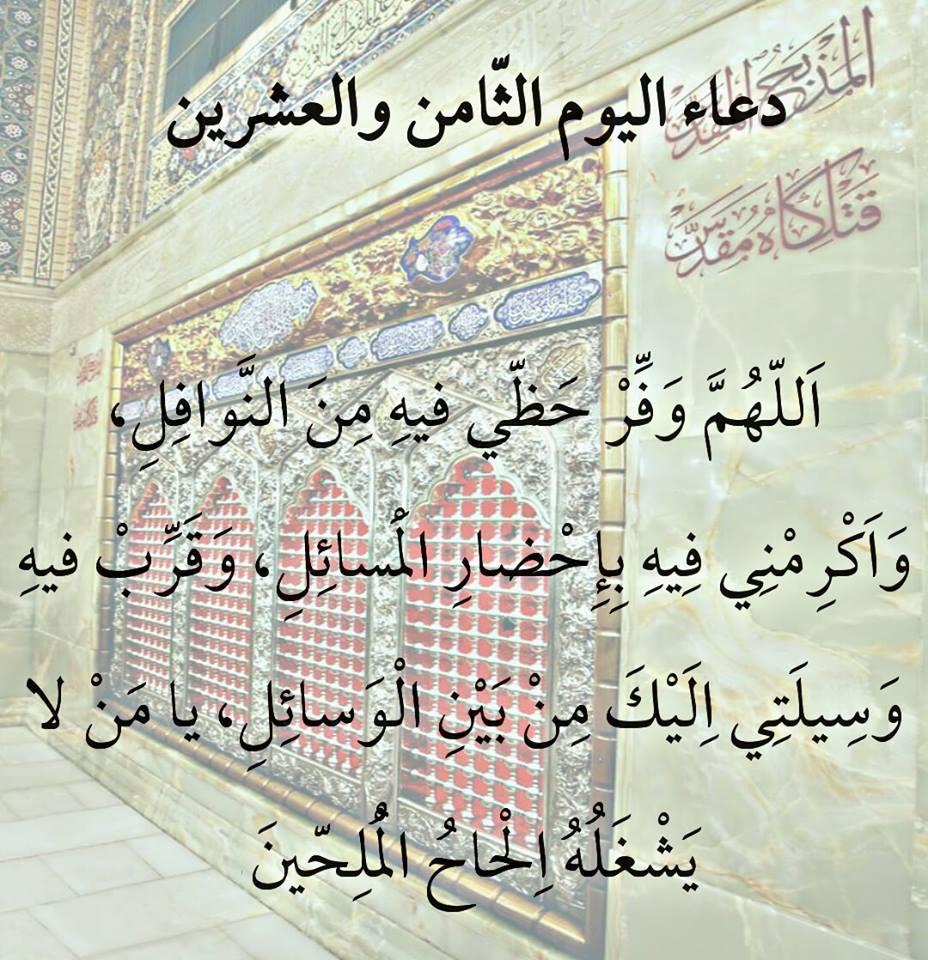 دعاء اليوم الثّامن والعشرين
المذبح المقدس
قتلگاه مقدس
اَللّهُمَّ وَفِّرْ حَظّي فيهِ مِنَ النَّوافِلِ،
وَاَكْرِمْنِي فِيهِ بِإِحْضارِ الْمَسائِلِ، وَقَرِّبْ فيهِ
وَسِيلَتِي اِلَيْكَ مِنْ بَيْنِ الْوَسائِلِ، يا مَنْ لا
يَشْغَلُهُ اِلْحاحُ الْمُلِحّينَ